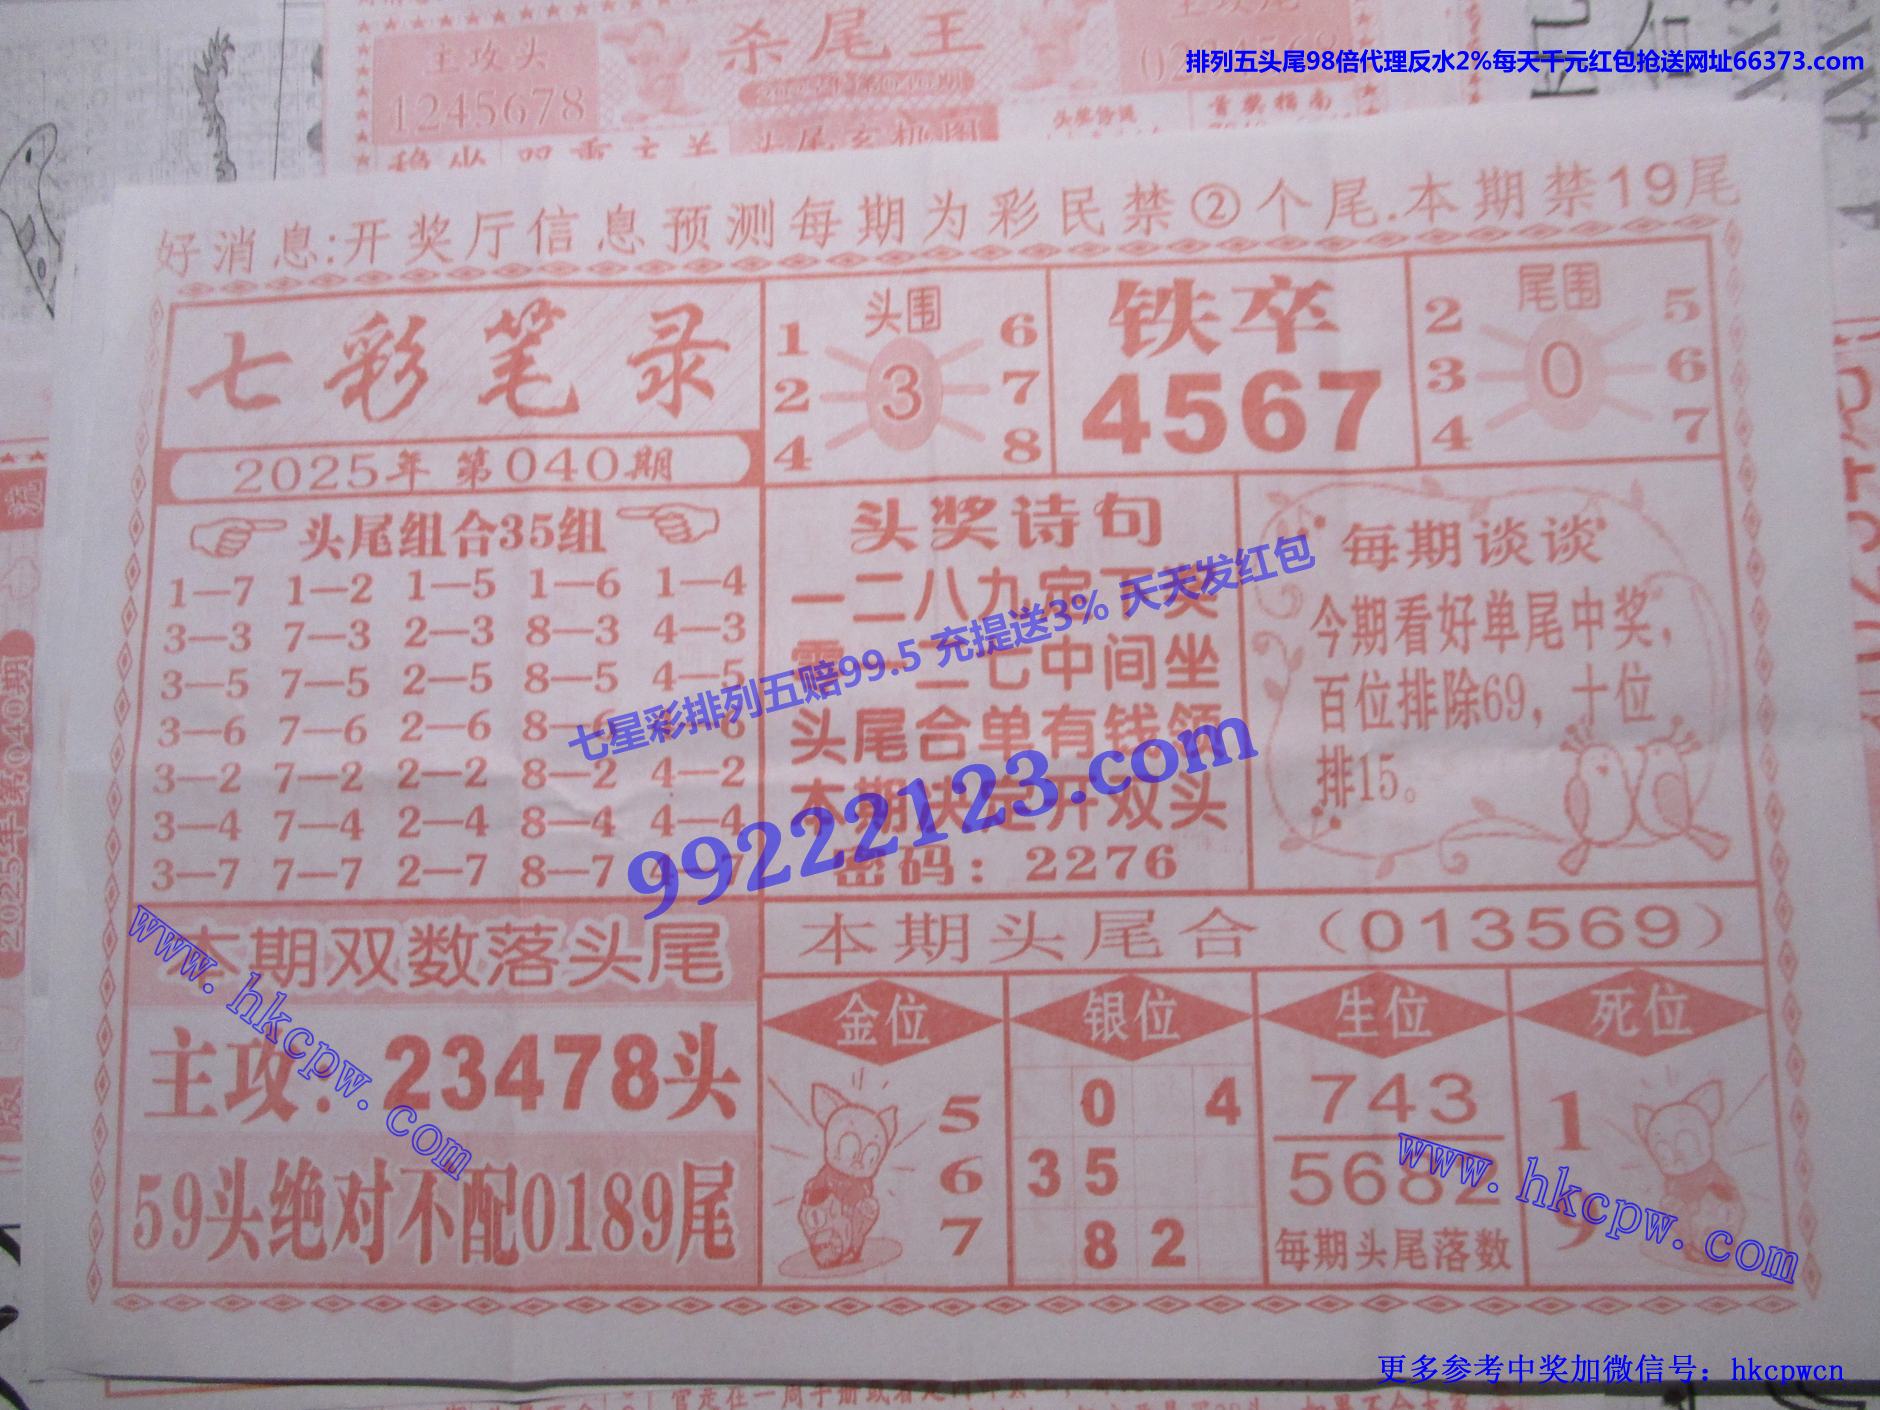 主攻头
1245678
杀尾王
排列五头尾98倍代理反水2%每天千元红包抢送网址66373.com
头尾玄机图
好消息:开奖厅信息预测每期为彩民禁②个尾.本期禁19尾
七彩笔录
2025年 第040期
头围
1 6
2 3 7
4 8
铁卒
4567
尾围
2 5
3 0 6
4 7
头尾组合35组
1—7 1—2 1—5 1—6 1—4
3—3 7—3 2—3 8—3 4—3
3—5 7—5 2—5 8—5 4—5
3—6 7—6 2—6 8—6 4—6
3—2 7—2 2—2 8—2 4—2
3—4 7—4 2—4 8—4 4—4
3—7 7—7 2—7 8—7 4—7
头奖诗句
一二八九定下奖
零一二七中间坐
头尾合单有钱领
本期决定开双头
密码：2276
每期谈谈
今期看好单尾中奖，
百位排除69，十位
排15。
七星彩排列五赔99.5 充提送3% 天天发红包
99222123.com
本期双数落头尾
主攻：23478头
59头绝对不配0189尾
本期头尾合（013569）
金位
5
6
7
银位
0 4
3 5
8 2
生位
743
5682
每期头尾落数
死位
1
9
www.hkcpw.com
www.hkcpw.com
2025年第040期
更多参考中奖加微信号：hkcpwcn